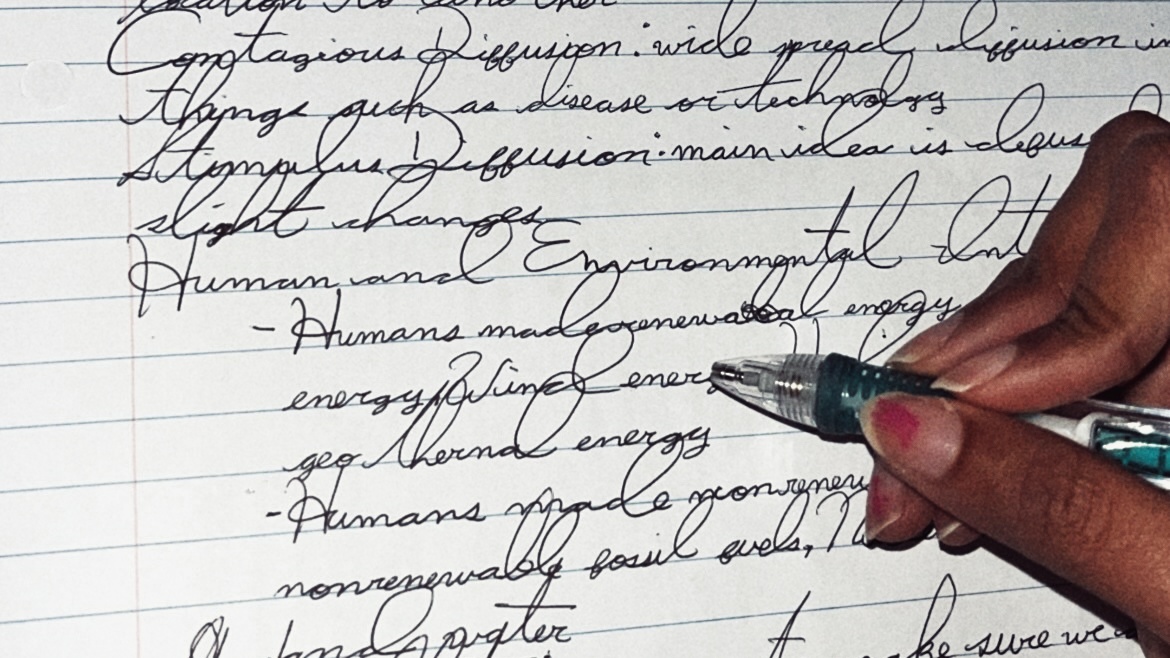 location to another
Contagious Diffusion: wide spread diffusion in
things such as disease or technology
Stimulus Diffusion: main idea is
slight changes
Human and Environmental Int
- Humans made renewable energy
energy, Wind energ
geo thermal energy
- Humans made nonrenew
nonrenewable fossil fuels,
make sure we